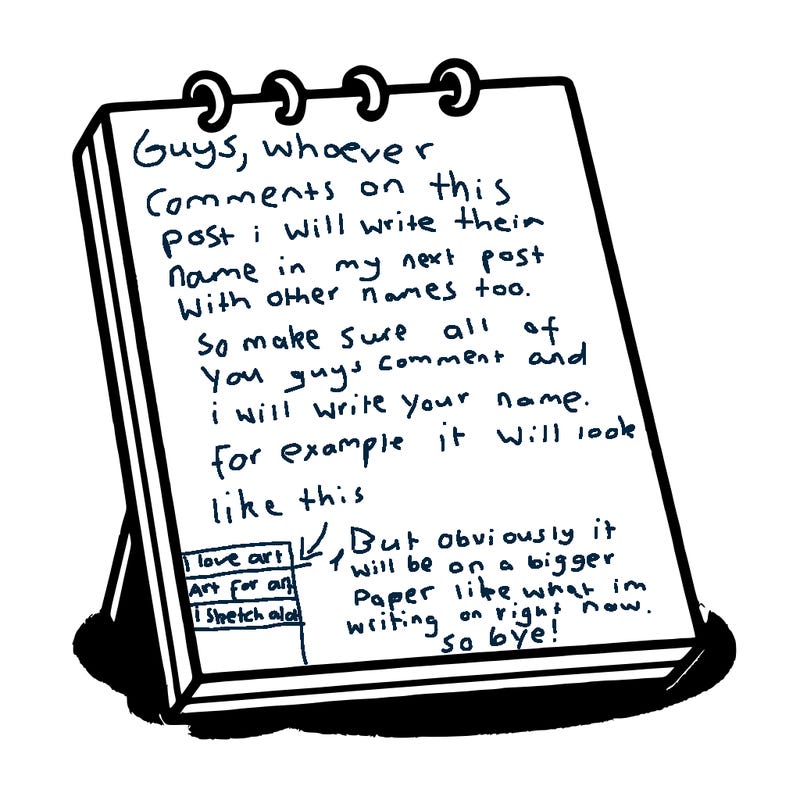 Guys, whoever
Comments on this
post i will write their
name in my next post
with other names too.
So make sure all of
you guys comment and
i will write your name.
for example it will look
like this
I love art
Art for art
I sketch alot
But obviously it
will be on a bigger
Paper like what im
writing on right now.
So bye!